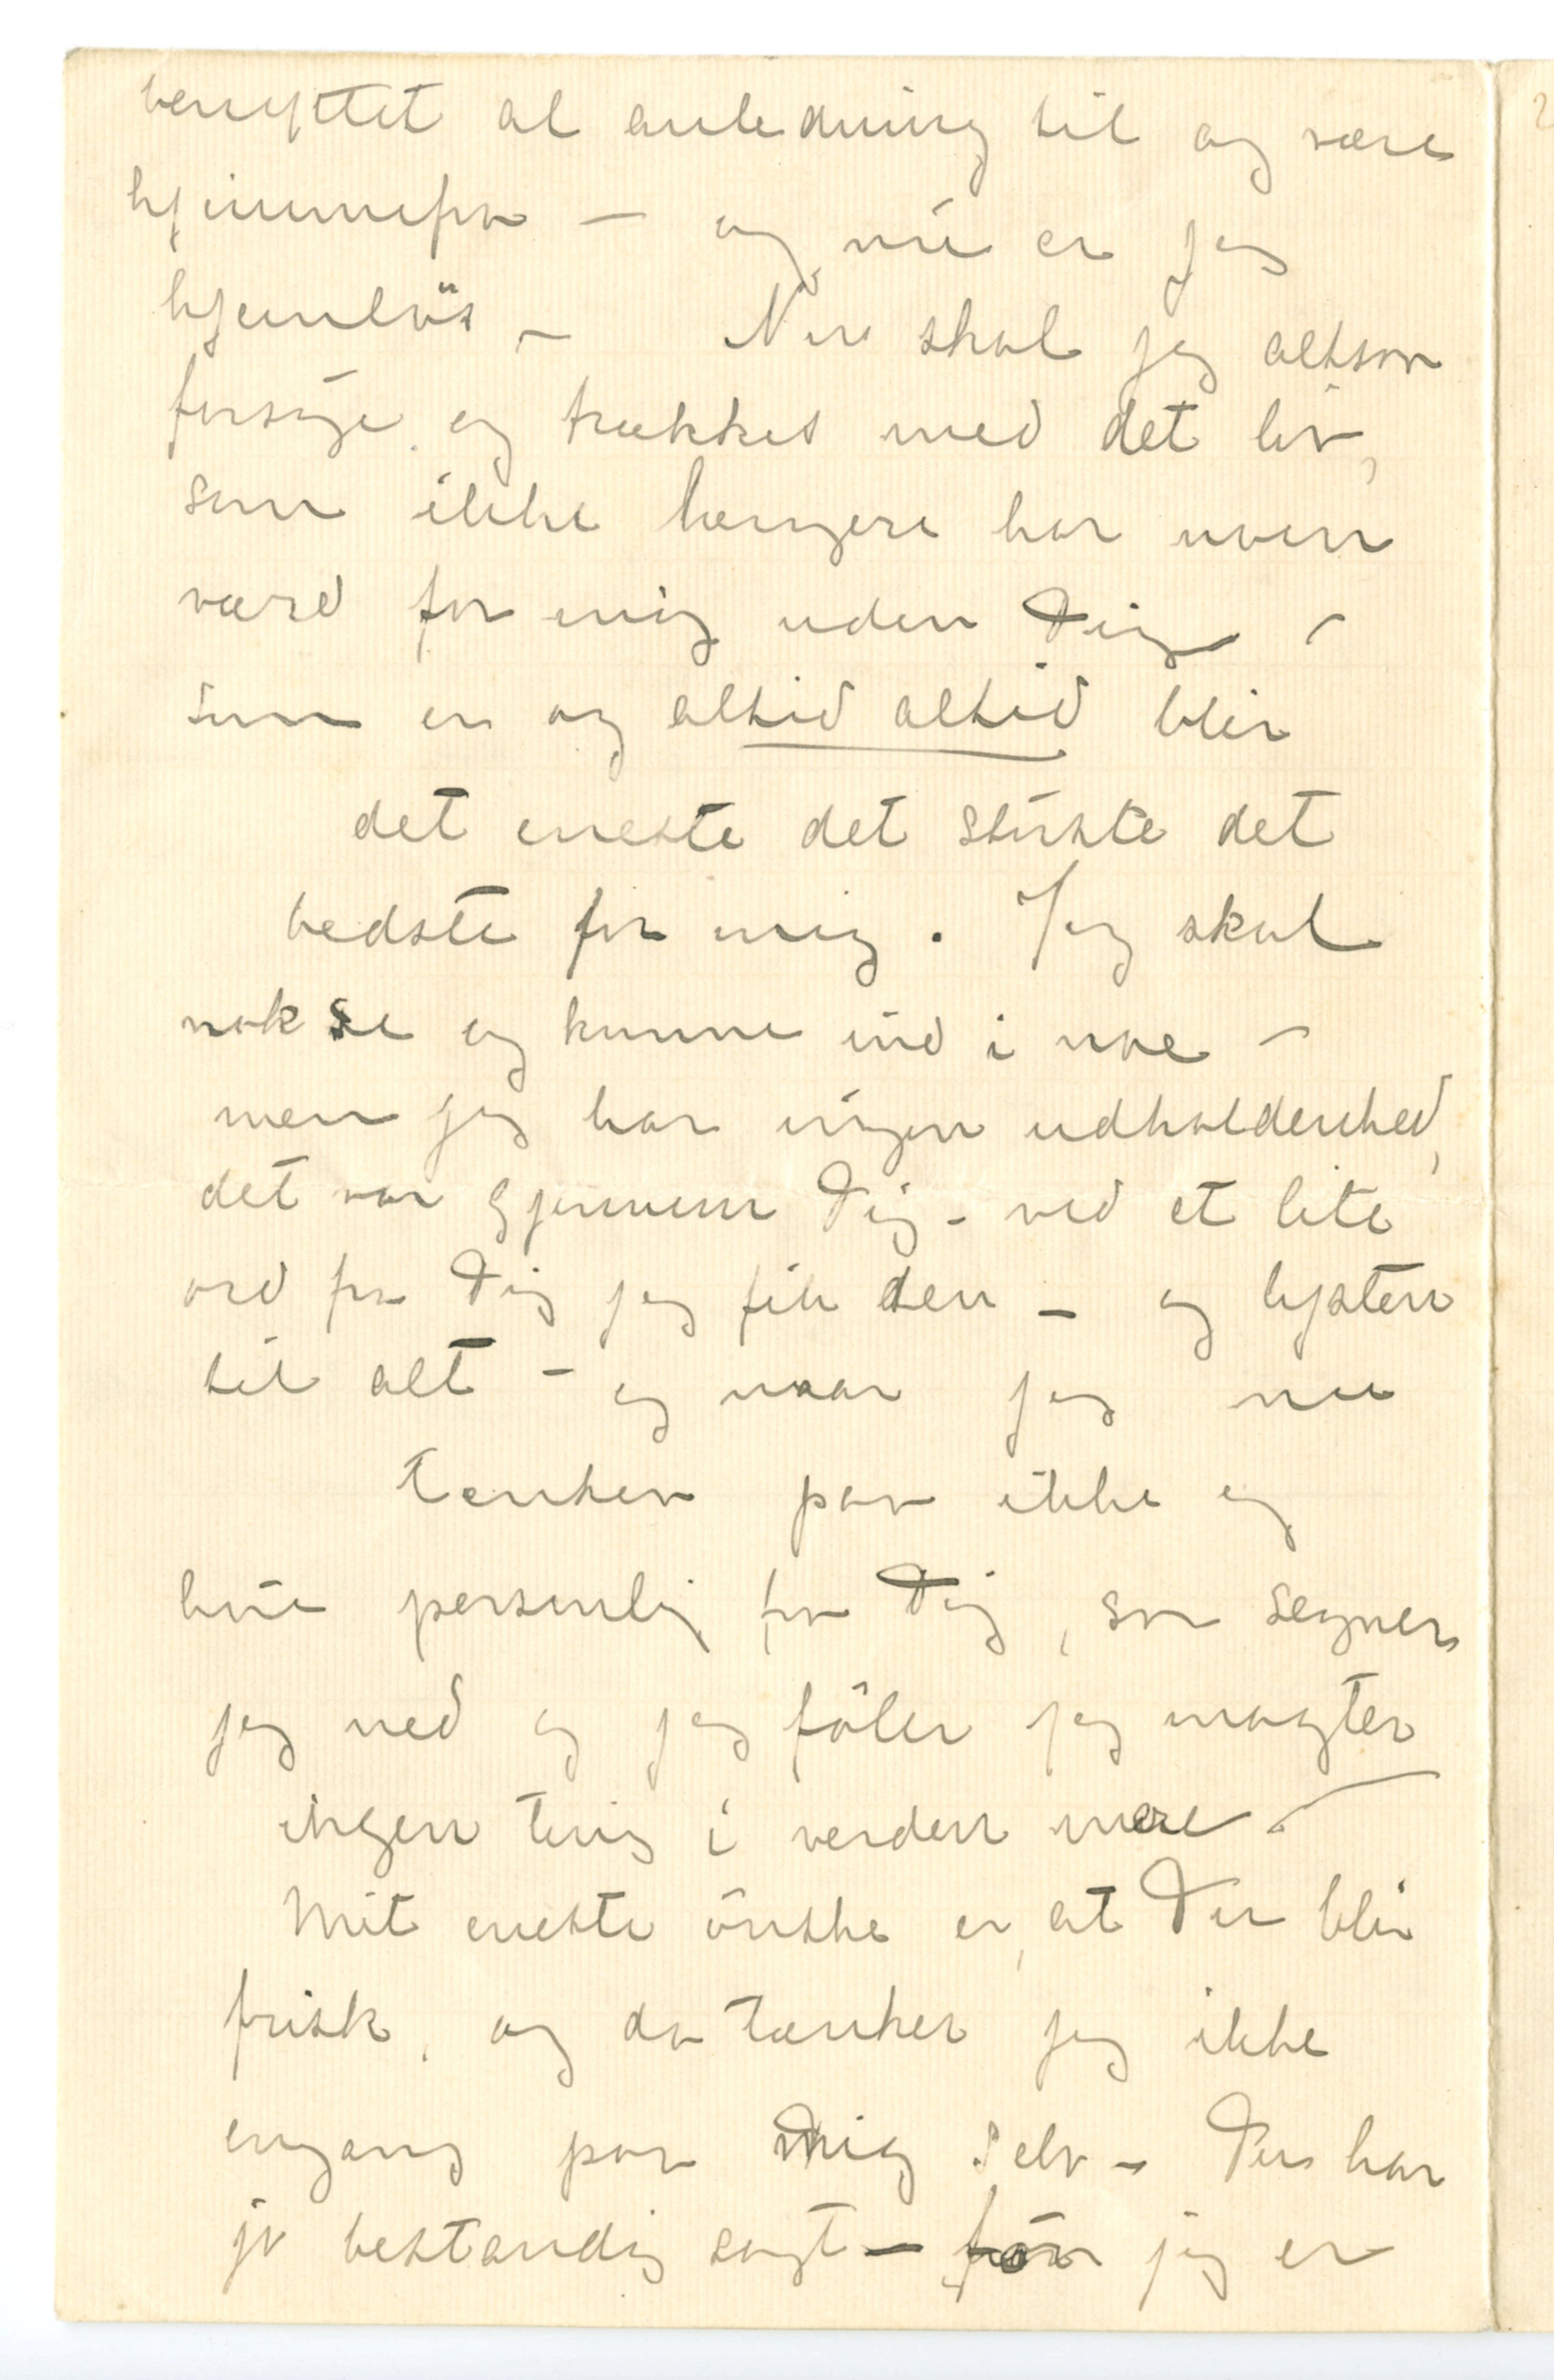 benyttet al anledning til og være
hjemmefra – og nu er jeg
hjemløs – Nu skal jeg altsaa
forsøge og trækkes med det liv,
som ikke længere har noen
værd for mig uden Dig –
som er og altid altid blir
det eneste det største det
bedste for mig. Jeg skal
nok se og komme ind i noe –
men jeg har ingen udholdenhed,
det var gjennem Dig – ved et lite
ord fra Dig jeg fik den – og lysten
til alt – og naar jeg nu
tenker paa ikke og
høre personlig fra Dig, saa segner
jeg ned og jeg føler jeg magter
ingen ting i verden mere –
Mit eneste ønske er, at Du blir
frisk, og da tænker jeg ikke
engang paa mig selv – Du har
jo bestandig sagt – før jeg er